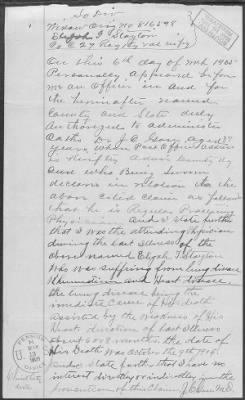 So Div
Widow Orig No 816598
Elijah T Slayton
Co E 27 Reg Ky vol
On this 6th day of Mch 1905
Personally appeared before
me an Officer in and for
the hereinafter named
County and State duly
Authorized to administer
Oaths Dr J C aged 37
years whose Post Office address
is Adair County Ky
and who Being sworn
declares in relation to the
above cited Claim as follows
that he is Regular Practicing
Physician and I state further
that I was the attending Physician
during the last illness of the
above named Elijah T Slayton
who was suffering from lung disease
Rheumatism and Heart disease
the lung disease being the
immediate Cause of His Death
assisted by the weakness of His
Heart duration of last illness
about 6 or 8 months the date of
His Death was October the 9th
further state facts that I have no
interest directly or indirectly in the
prosecution of this Claim J C M.D.
PENSION
U.S.
OFFICE